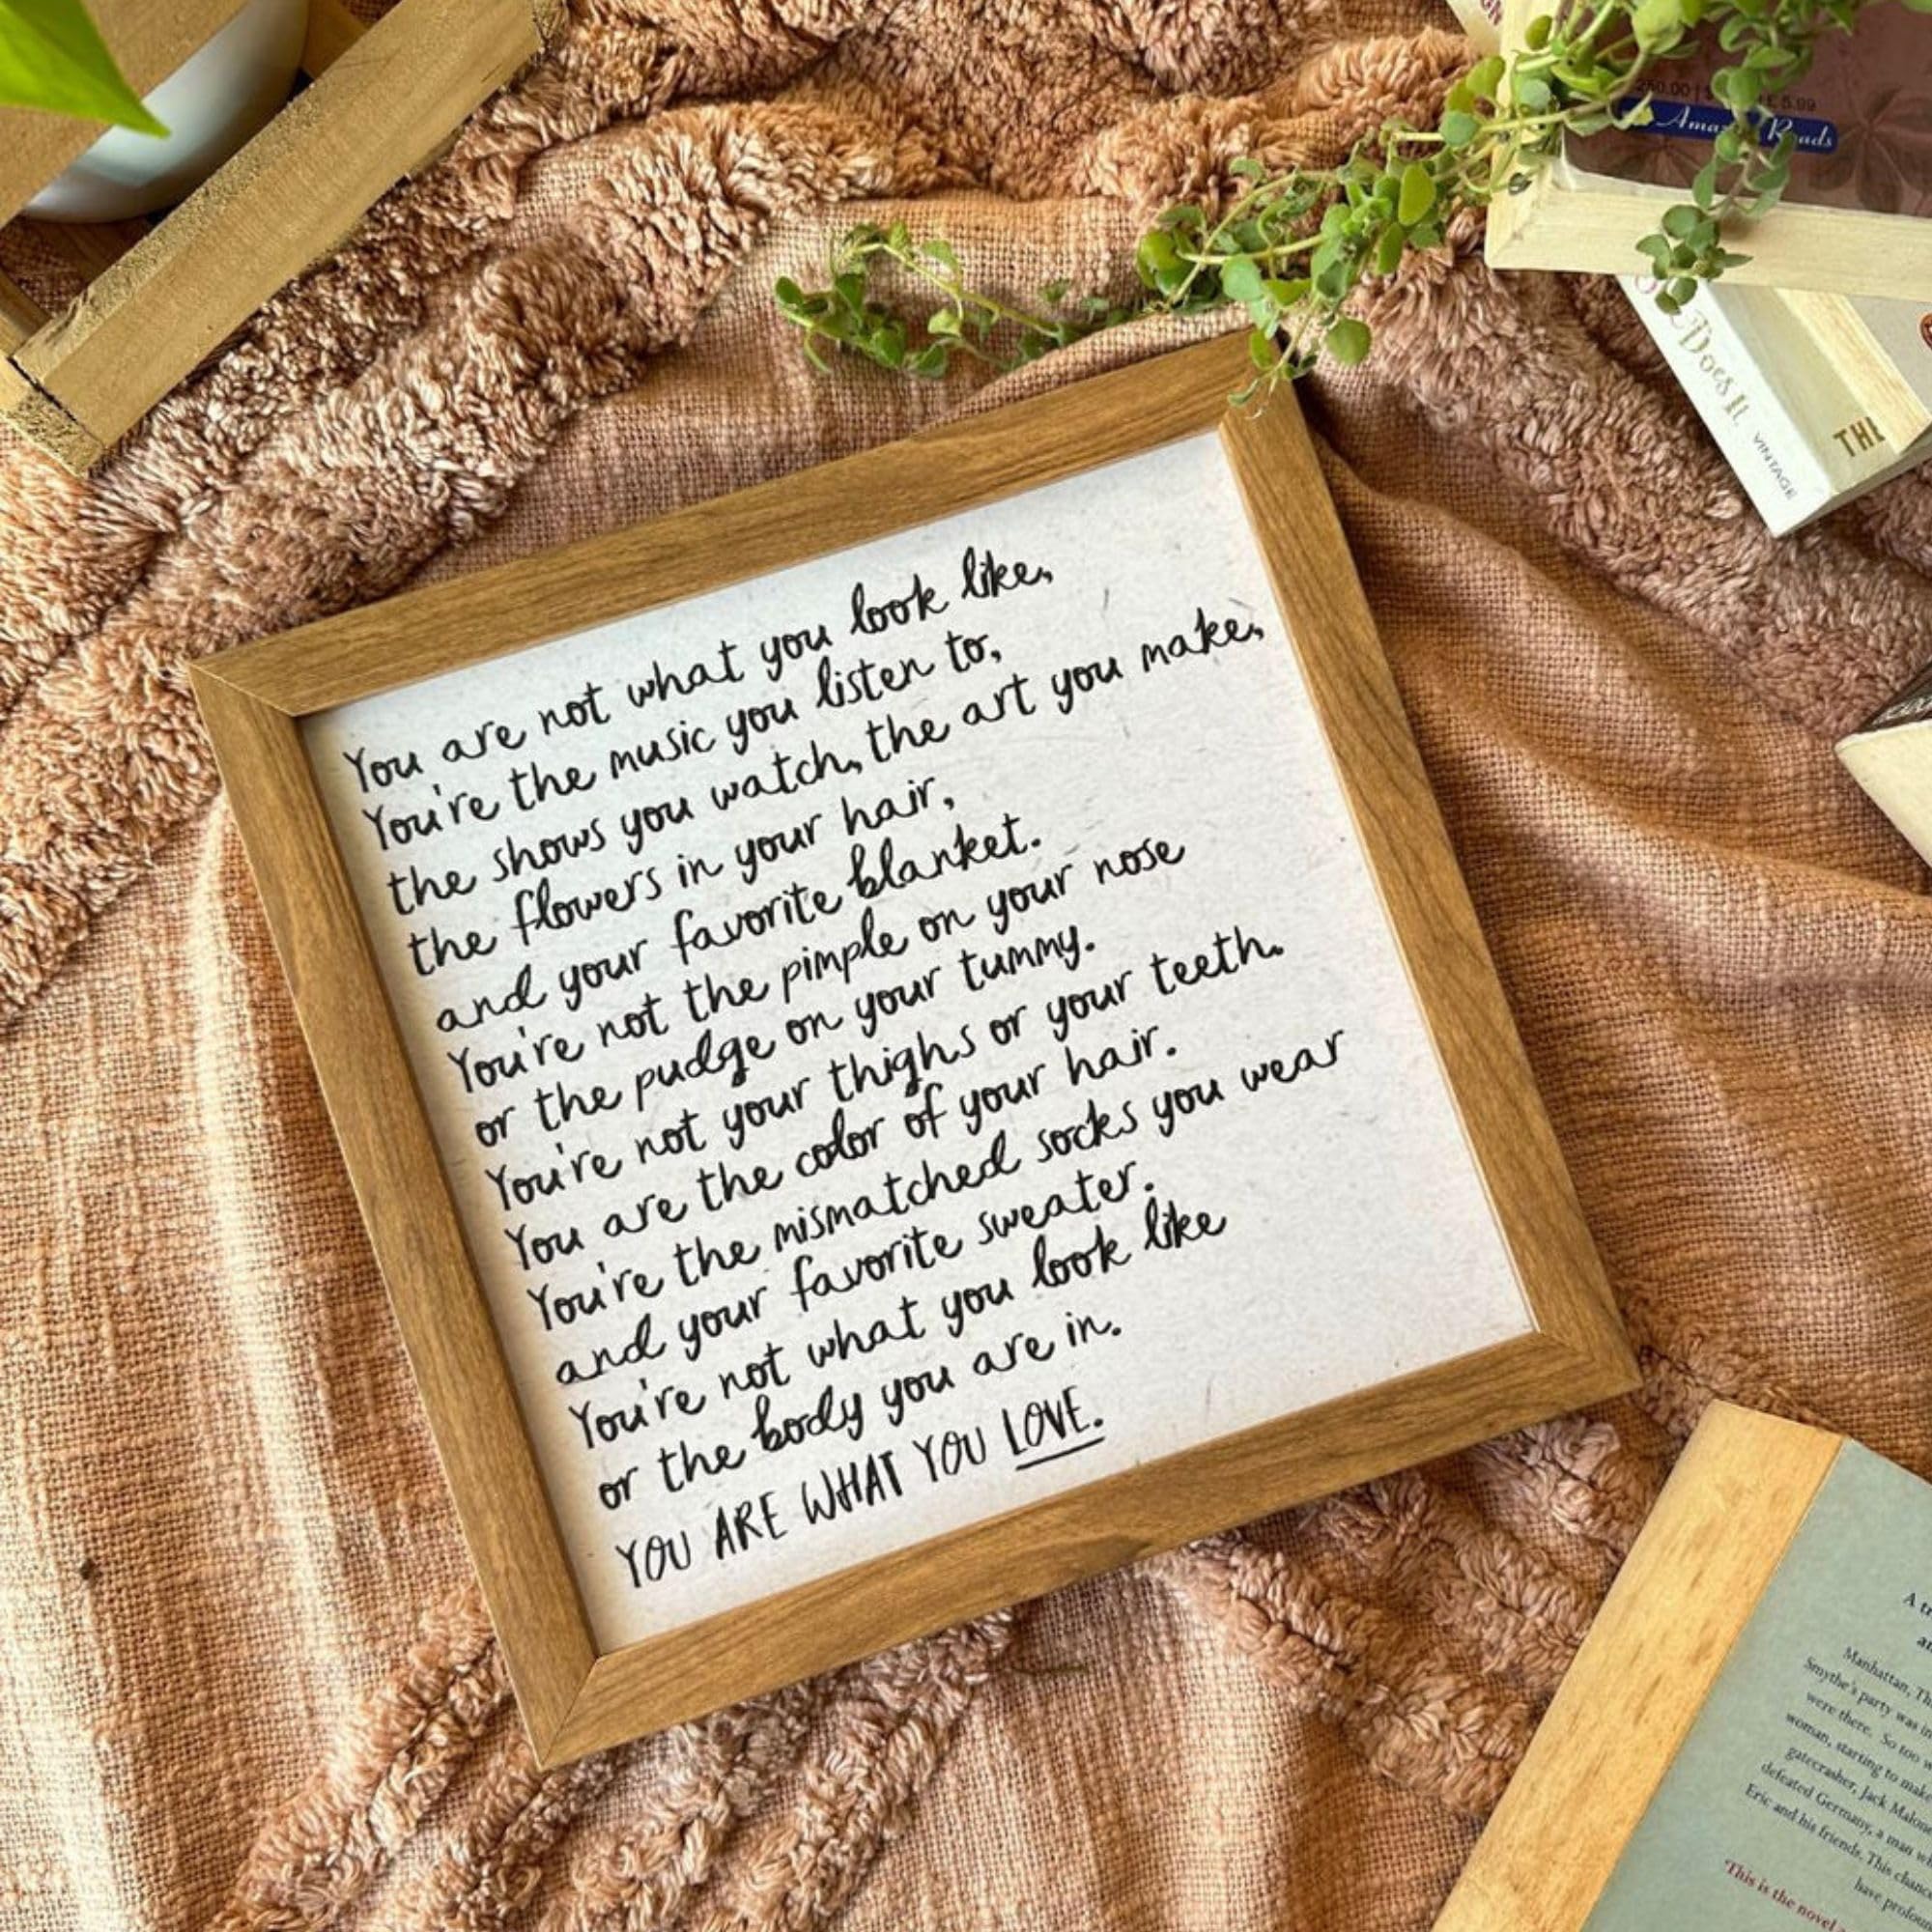 You are not what you look like,
You're the music you listen to,
the shows you watch, the art you make,
the flowers in your hair,
and your favorite blanket.
You're not the pimple on your nose
or the pudge on your tummy.
You're not your thighs or your teeth.
You are the color of your hair.
You're the mismatched socks you wear
and your favorite sweater.
You're not what you look like
or the body you are in.
YOU ARE WHAT YOU LOVE.
£ 5.99
VINTAGE
THE
Manhattan,
Smythe's party was
were there. So too
woman, starting to
gatecrasher, Jack
defeated Germany, a man
Eric and his friends. This
have
'This is the novel